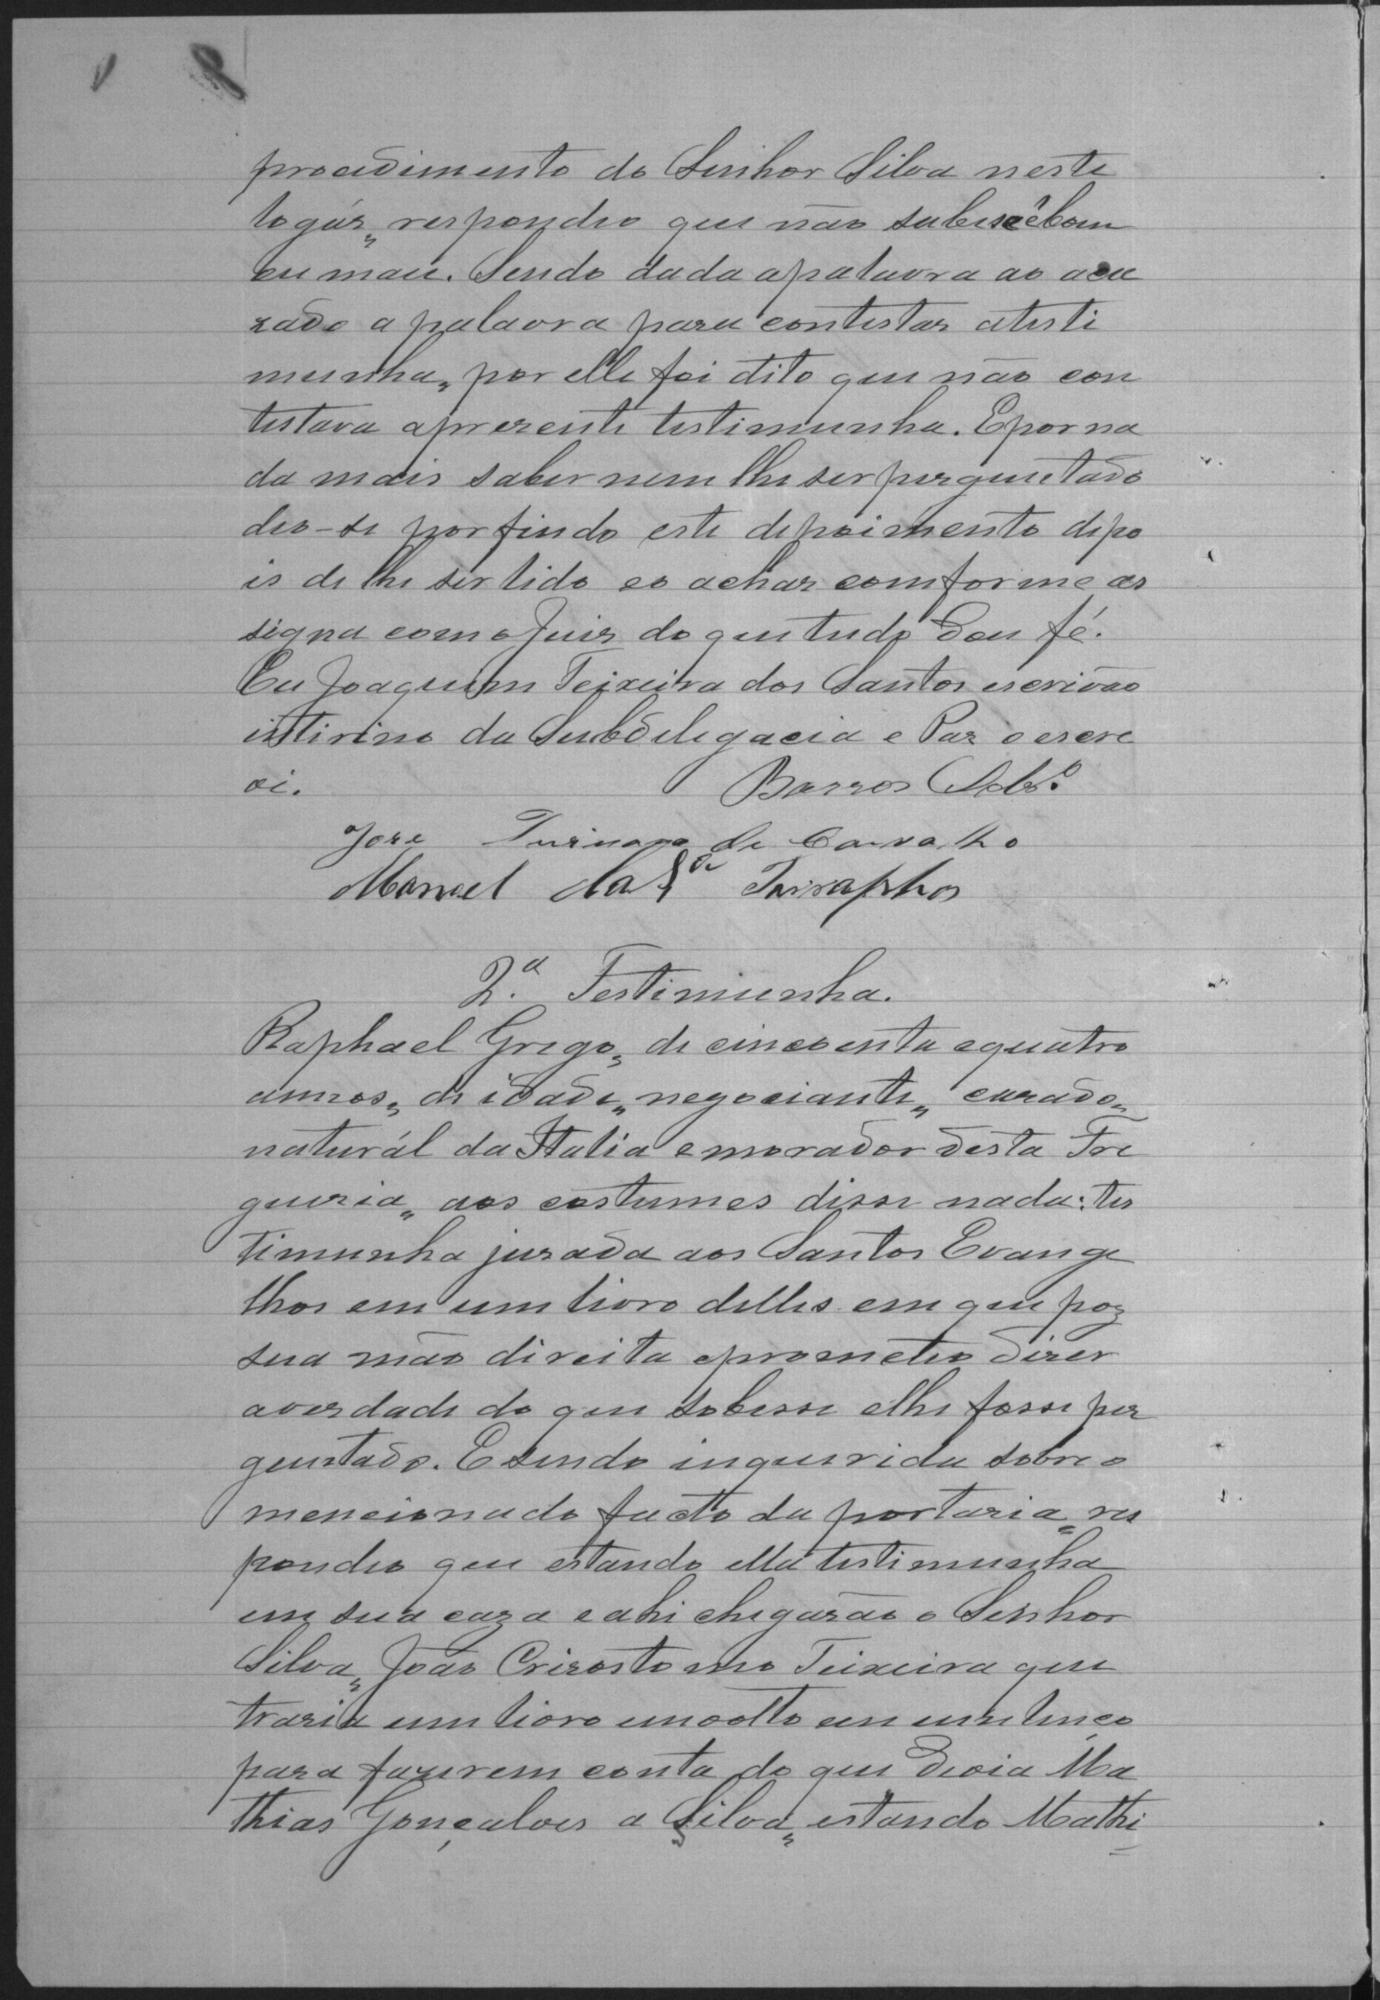 procedimento do Senhor Silva neste
logár, respondeo que não sube se é bom
ou mau. Sendo dada apalavra ao acu
zado a palavra para contestar atesti
munha, por elle foi dito que não con
testava aprezente testimunha. Epor na
da mais saber nem lhe ser perguntado
deo-se por findo este depoimento depo
is de lhe ser lido eo achar comforme as
signa como Juis do que tudo dou fé.
Eu Joaquim Teixeira dos Santos escrivão
intirino da Subdelegacia e Paz o escre
vi. Barros Sobr.º
José de Carvalho
Manoel da
2.ª Testimunha.
Raphael Grego, de cincoenta equatro
annos, de idade, negociante, cazado,
naturál da Italia emorador desta Fre
guezia, aos costumes disse nada: tes
timunha jurada aos Santos Evange
lhos em um livro delles em que poz
sua mão direita eprometeo dizer
averdade do que sobesse elhe fosse per
guntado. E sendo inquerida sobre o
mencionado facto da portaria, res
pondeo que estando ella testimunha
em sua caza eahi chegarão o Senhor
Silva, João Crizostomo Teixeira que
trazia um livro envolto em um lenço
para fazerem conta do que devia Ma
thias Gonçalves a Silva, estando Mathi